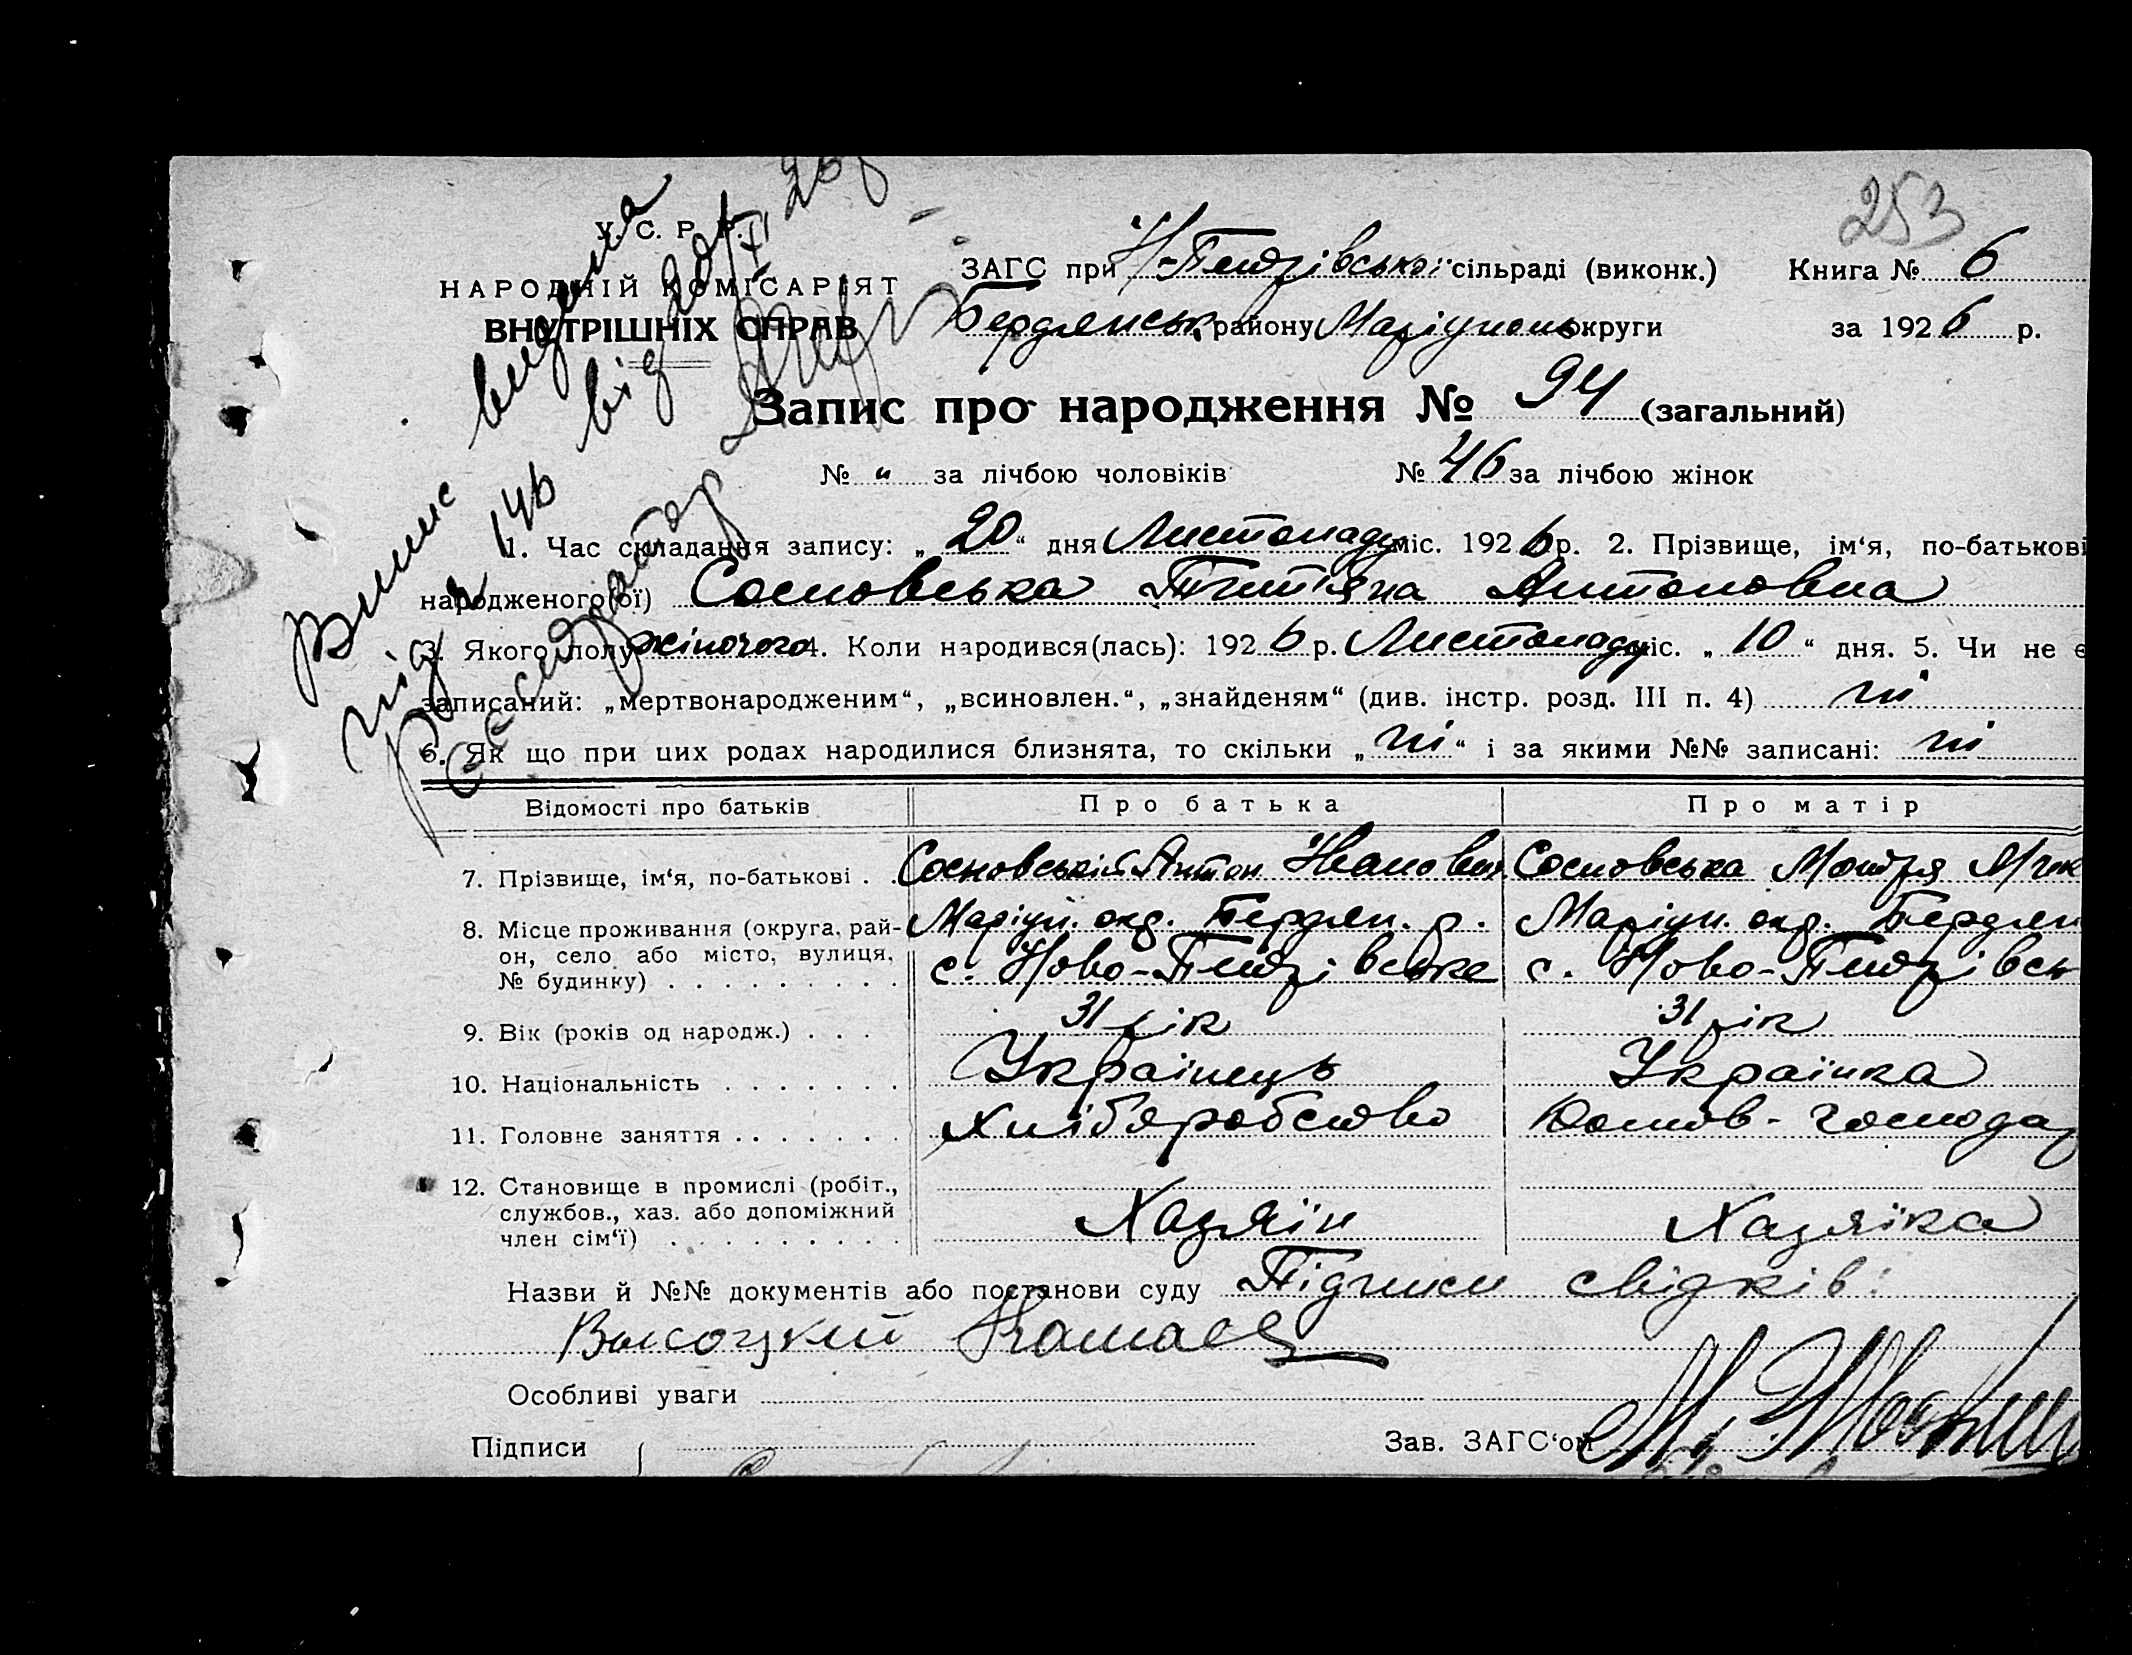 253
У. С. Р. Р.
НАРОДНІЙ КОМІСАРІЯТ
ВНУТРІШНІХ СПРАВ
ЗАГС при Н-Петрівської сільраді (виконк.) Книга № 6
Бердянськ. району Маріуполь округи за 1926 р.
Випис видана
під ч 146 від 20/XI 26 р
Запис про народження № 94 (загальний)
№ " за лічбою чоловіків № 46 за лічбою жінок
1. Час складання запису: „ 20 “ дня Листопаду міс. 1926 р. 2. Прізвище, ім‘я, по-батькові
народженого(ої) Сосновська Тит'яна Антоновна
3. Якого полу жіночого 4. Коли народився(лась): 1926 р. Листопаду міс. „ 10 “ дня. 5. Чи не є
записаний: „мертвонародженим“, „всиновлен.“, „знайденям“ (див. інстр. розд. III п. 4) ні
6. Як що при цих родах народилися близнята, то скільки „ ні “ і за якими №№ записані: ні
Відомості про батьків Про батька Про матір
7. Прізвище, ім‘я, по-батькові . . Сосновський Антон Іванович Сосновська Мотря
8. Місце проживання (округа, рай-он, село або місто, вулиця, № будинку) Маріуп. окр. Бердян. р. Маріуп. окр. Бердян
с. Ново-Петрівське с. Ново-Петрівсь
9. Вік (років од народж.) . . . 31 рік 31 рік
10. Національність Українець Українка
11. Головне заняття Хліборобство Домов-господар
12. Становище в промислі (робіт., службов., хаз. або допоміжний член сім‘ї) Хазяїн Хазяїка
Назви й №№ документів або постанови суду Підписи свідків:
Высоцкий
Особливі уваги
Підписи Зав. ЗАГС‘ом